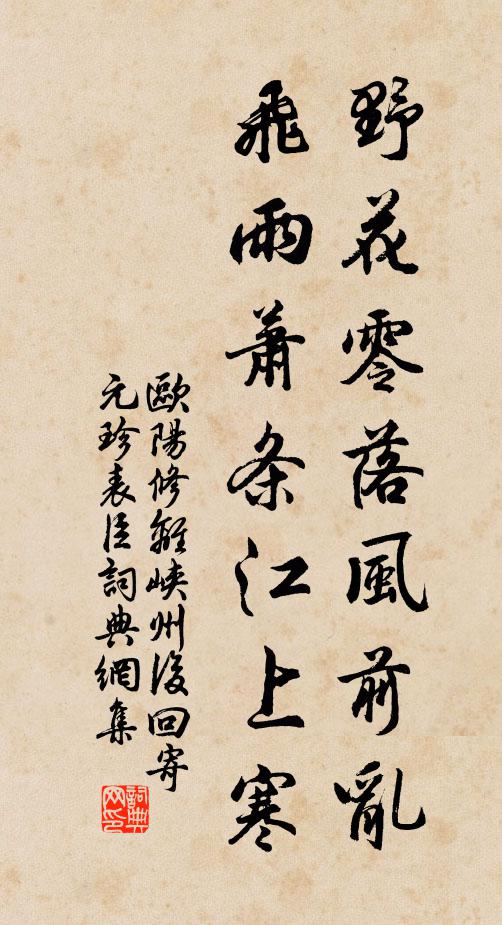 野花零落風前亂
飛雨蕭条江上寒
歐陽修離峽州後回寄
元珍表臣詞典網集
詞典網印